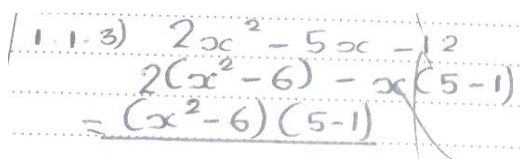 1.1.3) 2x² - 5x - 12
2(x² - 6) - x(5 - 1)
= (x² - 6)(5 - 1)